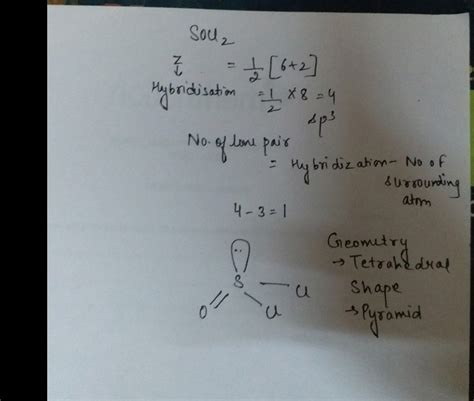 SOCl2
Z = 1/2 [6+2]
↓
Hybridisation = 1/2 × 8 = 4
sp3
No. of lone pair
= Hybridization - No of
surrounding
atom
4-3=1
Geometry
→ Tetrahedral
Shape
→ Pyramid
..
S
O Cl Cl